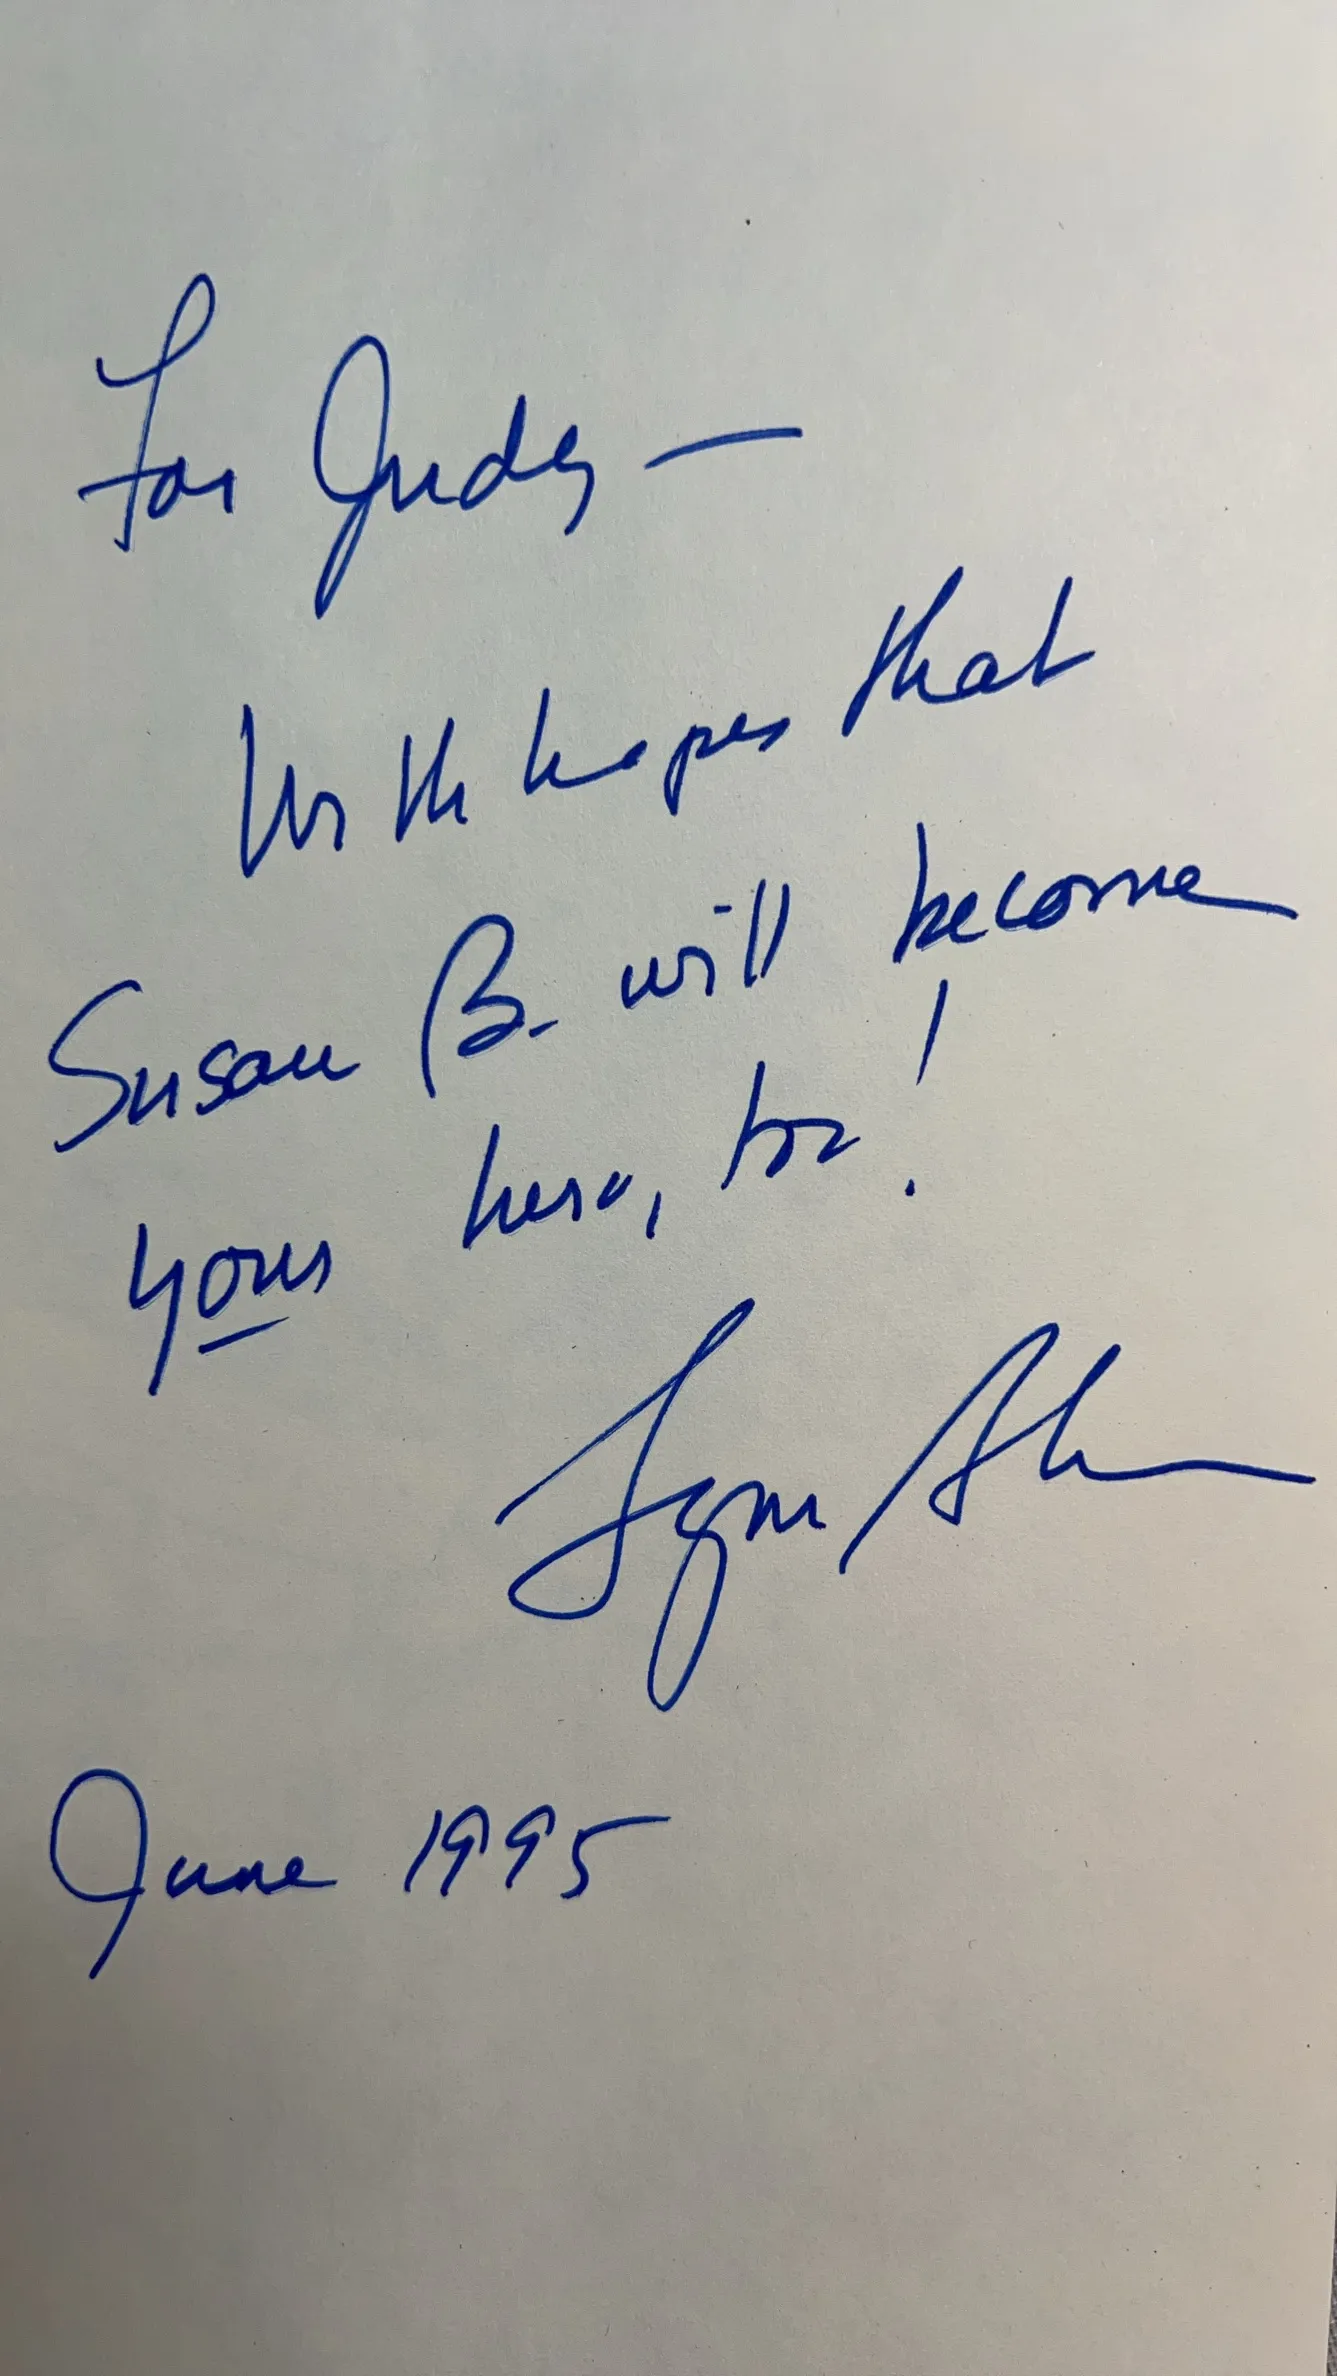 For Judy —
With hopes that
Susan B. will become
your hero, too!
Lynn
June 1995